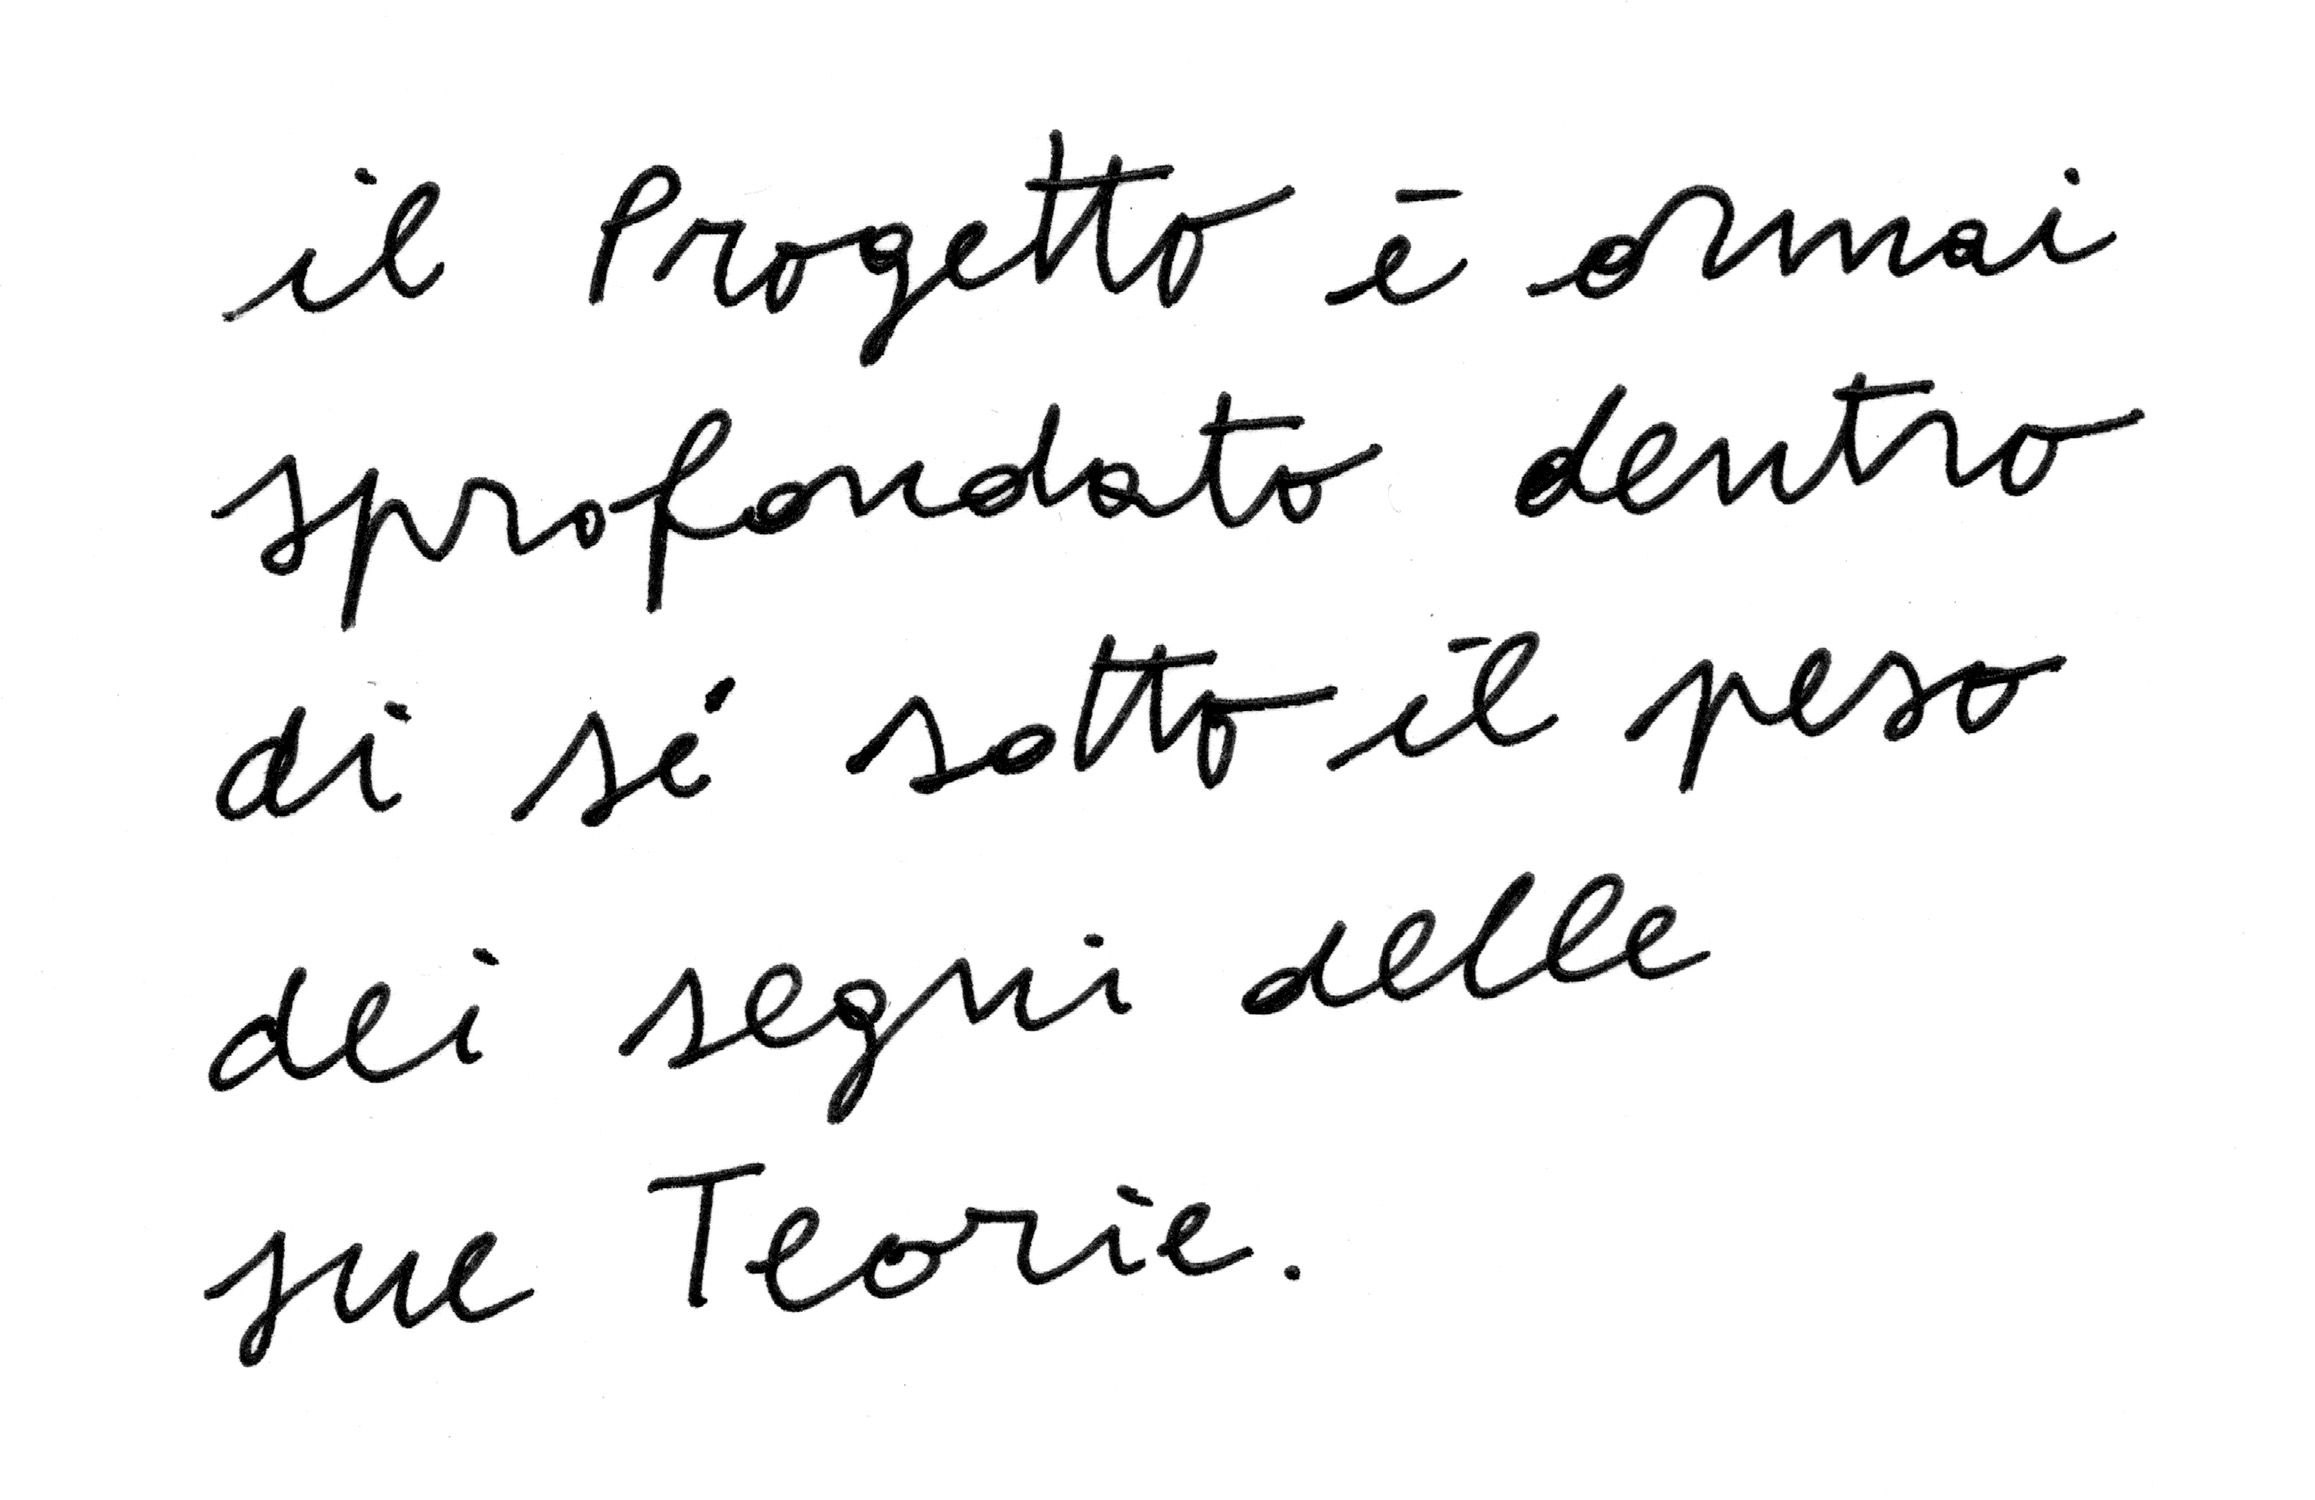 il Progetto è ormai
sprofondato dentro
di sé sotto il peso
dei segni delle
sue Teorie.